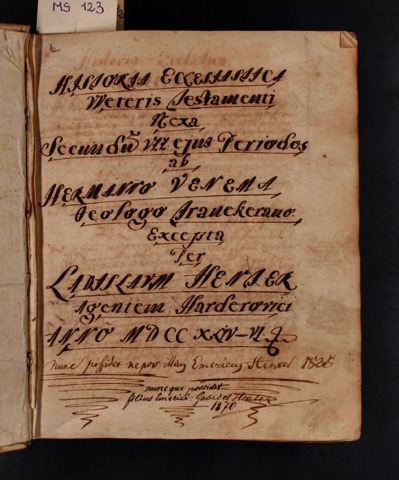 MS 123
HISTORIA ECKLESIASTICA
Veteris Testamenti
Nexa
Secundũ VII ejus Periodos
ab
HERMANNO VENEMA
Teologo Franekerano
Excepta
Per
LADISLAVM HENTER
Agentem Harderovici
ANNO MDCCXLIV–VI
nunc possidet nepos illius Emericus Henter 1825
nuncque possidet
filius Emerici: Gabriel Henter
1870